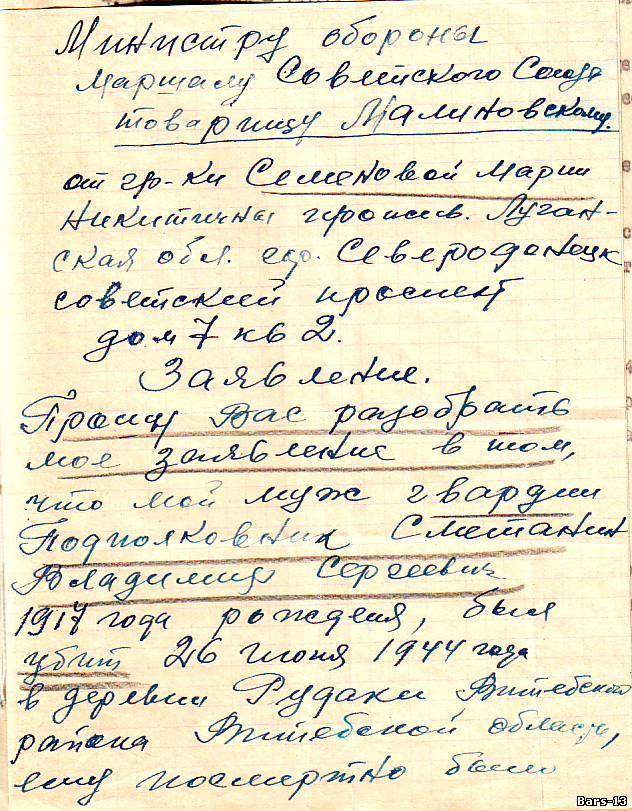 Министру обороны
Маршалу Советского Союза
товарищу Малиновскому.
от гр-ки Семеновой Марии
Никитичны прожив. Луган-
ская обл. гор. Северодонецк
советский проспект
дом 7 кв 2.
Заявление.
Прошу Вас разобрать
мое заявление в том,
что мой муж гвардии
Подполковник Сметанин
Владимир Сергеевич
1917 года рождения, был
убит 26 июня 1944 года
в деревни Рудаки Витебского
района Витебской области,
ему посмертно было
Bars-13